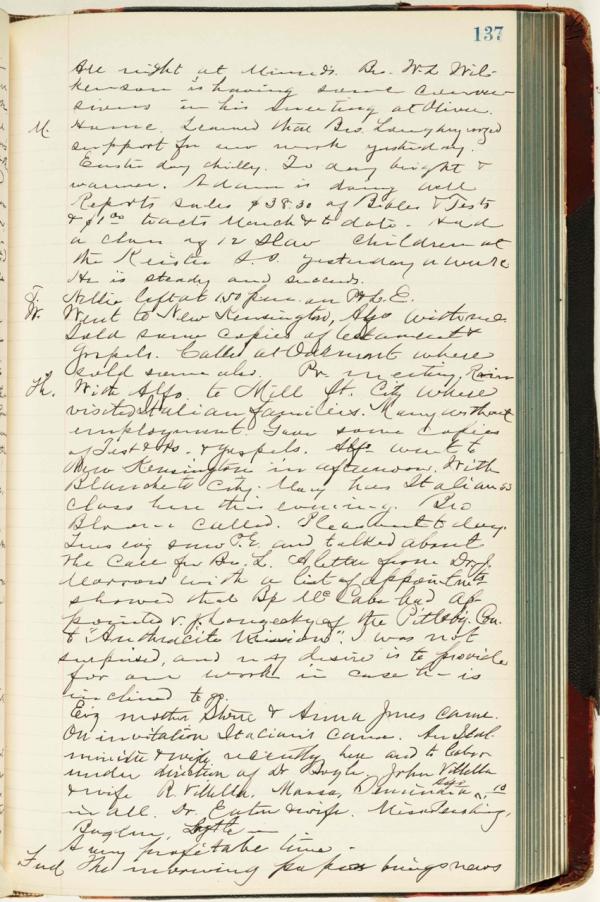 137
All night at Minnds. Bro. W. L. Wil-
kenson is having some conver
sions in his meeting at Olive.
M. Home. Learned that Bro. urged
support for our work yesterday.
Easter day chilly. To day bright &
warmer. Adam is doing well
Reports sales $38.30 of Bibles & Tests
& $1.00 tracts March & to date. Had
a class of 12 Slav children at
the Keister S. S. yesterday a week
He is steady and succeeds.
T. Nellie left at 1.50 p.m. on P. & L. E.
W. Went to New Kensington, Alfo with me
Sold some copies of testament &
Gospels. Called at Oakmont where
sold some also. Pr. meeting,
Th. With Alfo. to Mill St. City where
visited Italian families. Many without
employment. Gave some copies
of Test & Ps. & Gospels. Alfo went to
New Kensington in afternoon. With
Blanche to City. Mary has Italian
class here this evening. Bro
called. Pleasant to day.
This evg saw P. E. and talked about
the case for Bro. L. A letter from Dr. J.
Morrow with a list of appointmts
showed that Bp McCabe had ap
pointed to the Pittsbg. Con.
& "Anthracite Mission". I was not
surprised, and my desire is to provide
for our work in case he is
inclined to go.
Evg mother Shire & Anna Jones came.
On invitation Italians came. An Ital.
minister & wife recently here and to labor
under direction of Dr Boyle. John Villella
& wife R. Villella. Massa, also 10
in all. Dr. Eaton & wife. Miss Pershing,
A very profitable time.
Frid The morning paper brings news